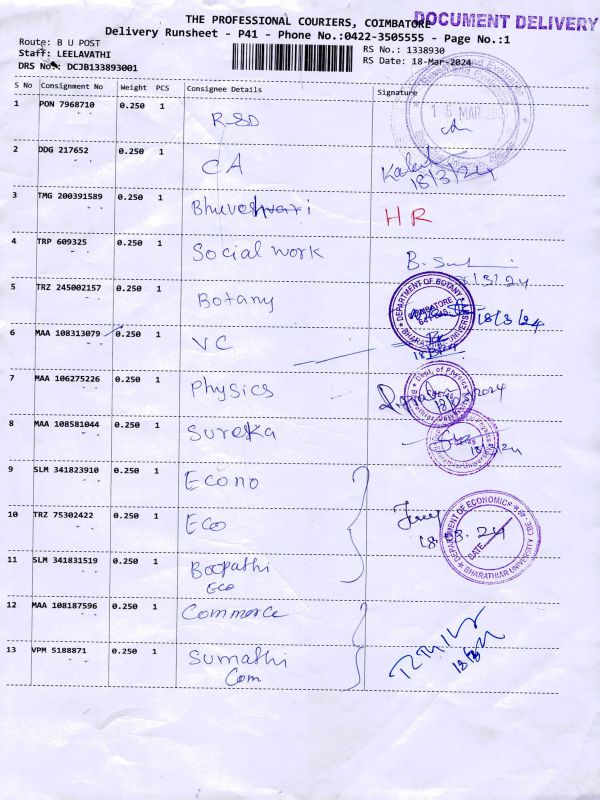 THE PROFESSIONAL COURIERS, COIMBATORE
DOCUMENT DELIVERY
Delivery Runsheet - P41 - Phone No.:0422-3505555 - Page No.:1
Route: B U POST
RS No.: 1338930
Staff: LEELAVATHI
RS Date: 18-Mar-2024
DRS No.: DCJB133893001
S No Consignment No Weight PCS Consignee Details Signature
1 PON 7968710 0.250 1 R&D
18 MAR
2 DDG 217652 0.250 1 CA
18/3/24
3 TMG 200391589 0.250 1 Bhuveshwari HR
4 TRP 609325 0.250 1 Social work B.
18/3/24
5 TRZ 245002157 0.250 1 Botany 18/3/24
DEPARTMENT OF BOTANY
COIMBATORE
BHARATHIAR UNIVERSITY
6 MAA 108313079 0.250 1 VC
18/3/24
7 MAA 106275226 0.250 1 Physics
Dept. of Physics
8 MAA 108581044 0.250 1 Sureka
18/3/24
9 SLM 341823910 0.250 1 Econo
10 TRZ 75302422 0.250 1 Eco
18.03.24
DEPARTMENT OF ECONOMICS
DATE
BHARATHIAR UNIVERSITY CBE-46
11 SLM 341831519 0.250 1 Boopathi
Eco
12 MAA 108187596 0.250 1 Commerce
13 VPM 5188871 0.250 1 Sumathi
Com